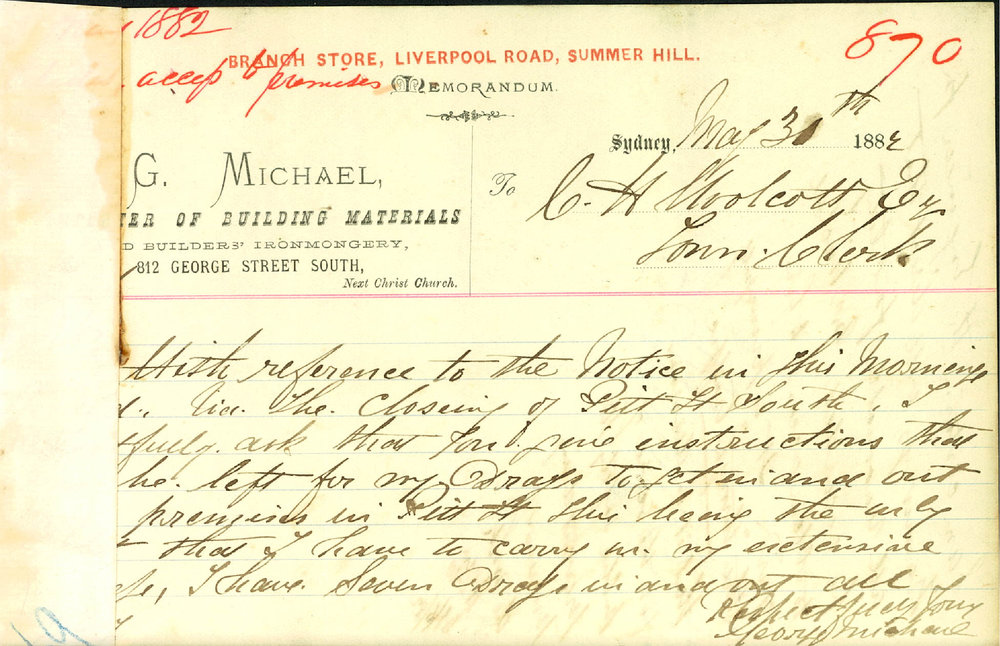 1882
BRANCH STORE, LIVERPOOL ROAD, SUMMER HILL.
870
accep to premises
MEMORANDUM.
Sydney, May 30th 1882
G. MICHAEL,
To C. H Woolcott Esq
TER OF BUILDING MATERIALS
Town Clerk
D BUILDERS' IRONMONGERY,
812 GEORGE STREET SOUTH,
Next Christ Church.
With reference to the Notice in this Mornings
Via. the closing of Pitt St South, I
fully ask that you give instructions that
be left for my Drays to get in and out
premises in Pitt St this being the only
that I have to carry on my extensive
I have Seven Drays in and out all
Respectfully Yours
George Michael